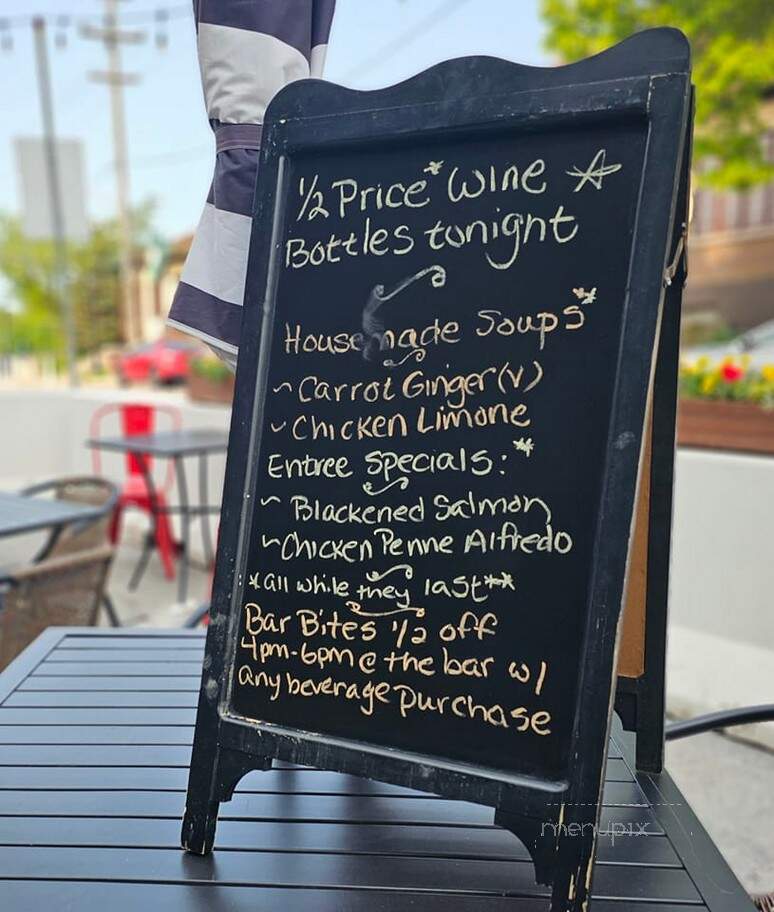 1/2 Price* Wine ☆
Bottles tonight
Housemade Soups*
~ Carrot Ginger (v)
~ Chicken Limone
Entree Specials:*
~ Blackened Salmon
~ Chicken Penne Alfredo
*all while they last**
Bar Bites 1/2 off
4pm-6pm @ the bar w/
any beverage purchase
menupix